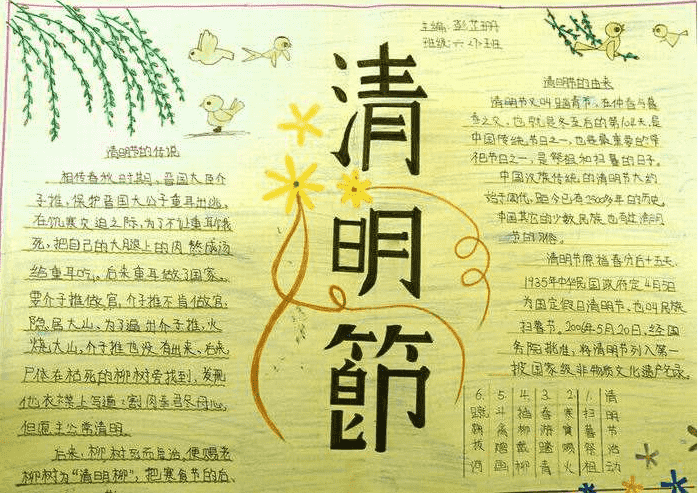 主编:彭芷珊
班级:六(2)班
清明節
清明节的传说
相传春秋时期,晋国大臣介
子推,保护晋国大公子重耳出逃,
在饥寒交迫之际,为了不让重耳饿
死,把自己的大腿上的肉熬成汤
给重耳吃。后来重耳做了国家。
要介子推做官,介子推不肯做官,
隐居大山,为了逼出介子推,火
烧大山,介子推也没有出来,后来,
尸体在枯死的柳树旁找到,发现
他衣襟上写道:割肉奉君尽丹心,
但愿主公常清明。
后来,柳树死而复活,便赐老
柳树为“清明柳”,把寒食节的后
清明节的由来
清明节又叫踏青节,在仲春与暮
春之交,也就是冬至后的第104天,是
中国传统节日之一,也是最重要的祭
祀节日之一,是祭祖和扫墓的日子。
中国汉族传统的清明节大约
始于周代,距今已有2500多年的历史,
中国其它的少数民族也有过清明
节的习俗。
清明节原指春分后十五天,
1935年中华民国政府定4月5日
为国定假日清明节,也叫民族
扫春节,2006年5月20日,经国
务院批准,将清明节列入第一
披国家级非物质文化遗产名录。
清明节活动
1.扫暮祭祖
2.寒食赐火
3.春游踏青
4.插柳戴柳
5.斗禽
6.蹴鞠拔河